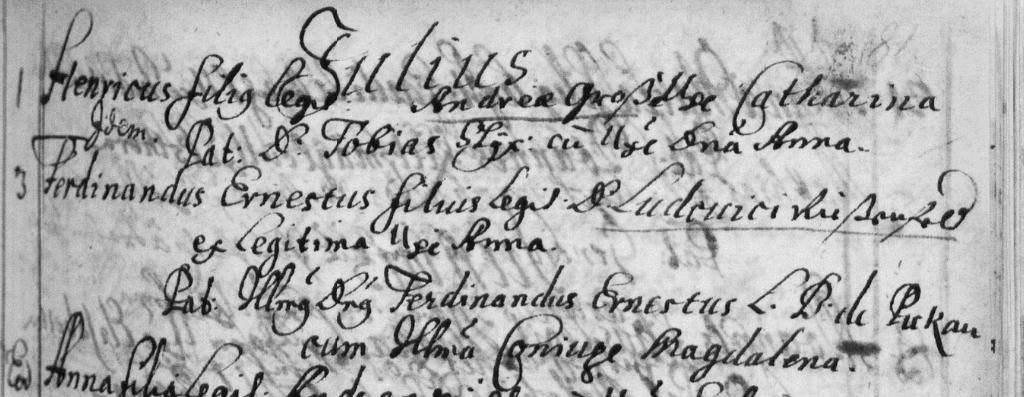 Julius
1 Henricus filius legit: Andreæ Groß et Ux: Catharina
Idem. Pat: D: Tobias cū Uxē Dnā Anna.
3 Ferdinandus Ernestus filius legit: D: Ludouici
ex legitima Uxe Anna.
Pat: Illmg Dng Ferdinandus Ernestus L. B: de Puckau,
cum Illmā Coniuge Magdalena.
Eod Anna filia legit: